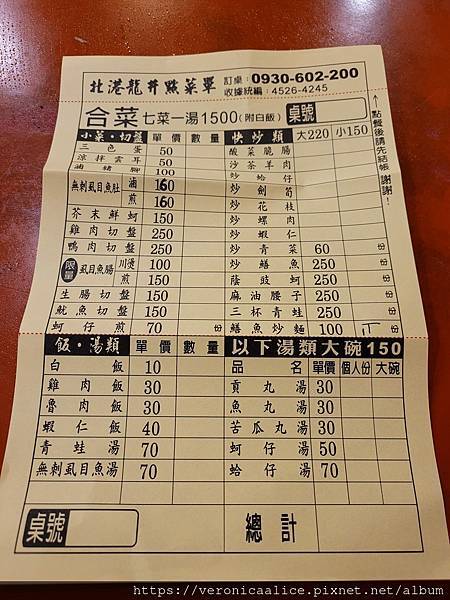 北港龍井點菜單
訂桌:0930-602-200
收據統編:4526-4245
合菜 七菜一湯1500(附白飯) 桌號
點餐後請先結帳 謝謝!
小菜·切盤 單價 數量 快炒類 大220 小150
三色蛋 50 酸菜脆腸
涼拌雲耳 50 沙茶羊肉
滷豬腳 100 炒蛤仔
無刺虱目魚肚 滷 160 炒劍筍
煎 160 炒花枝
芥末鮮蚵 150 炒螺肉
雞肉切盤 250 炒蝦仁
鴨肉切盤 250 炒青菜 60 份
限量 虱目魚腸 川燙 100 炒鱔魚 250 份
煎 150 蔭豉蚵 250 份
生腸切盤 150 麻油腰子 250 份
魷魚切盤 150 三杯青蛙 250 份
蚵仔煎 70 份 鱔魚炒麵 100 份
飯·湯類 單價 數量 以下湯類大碗150
白飯 10 品名 單價 個人份 大碗
雞肉飯 30 貢丸湯 30
魯肉飯 30 魚丸湯 30
蝦仁飯 40 苦瓜丸湯 30
青蛙湯 70 蚵仔湯 50
無刺虱目魚湯 70 蛤仔湯 70
桌號 總計
https://veronicaalice.pixnet.net/album